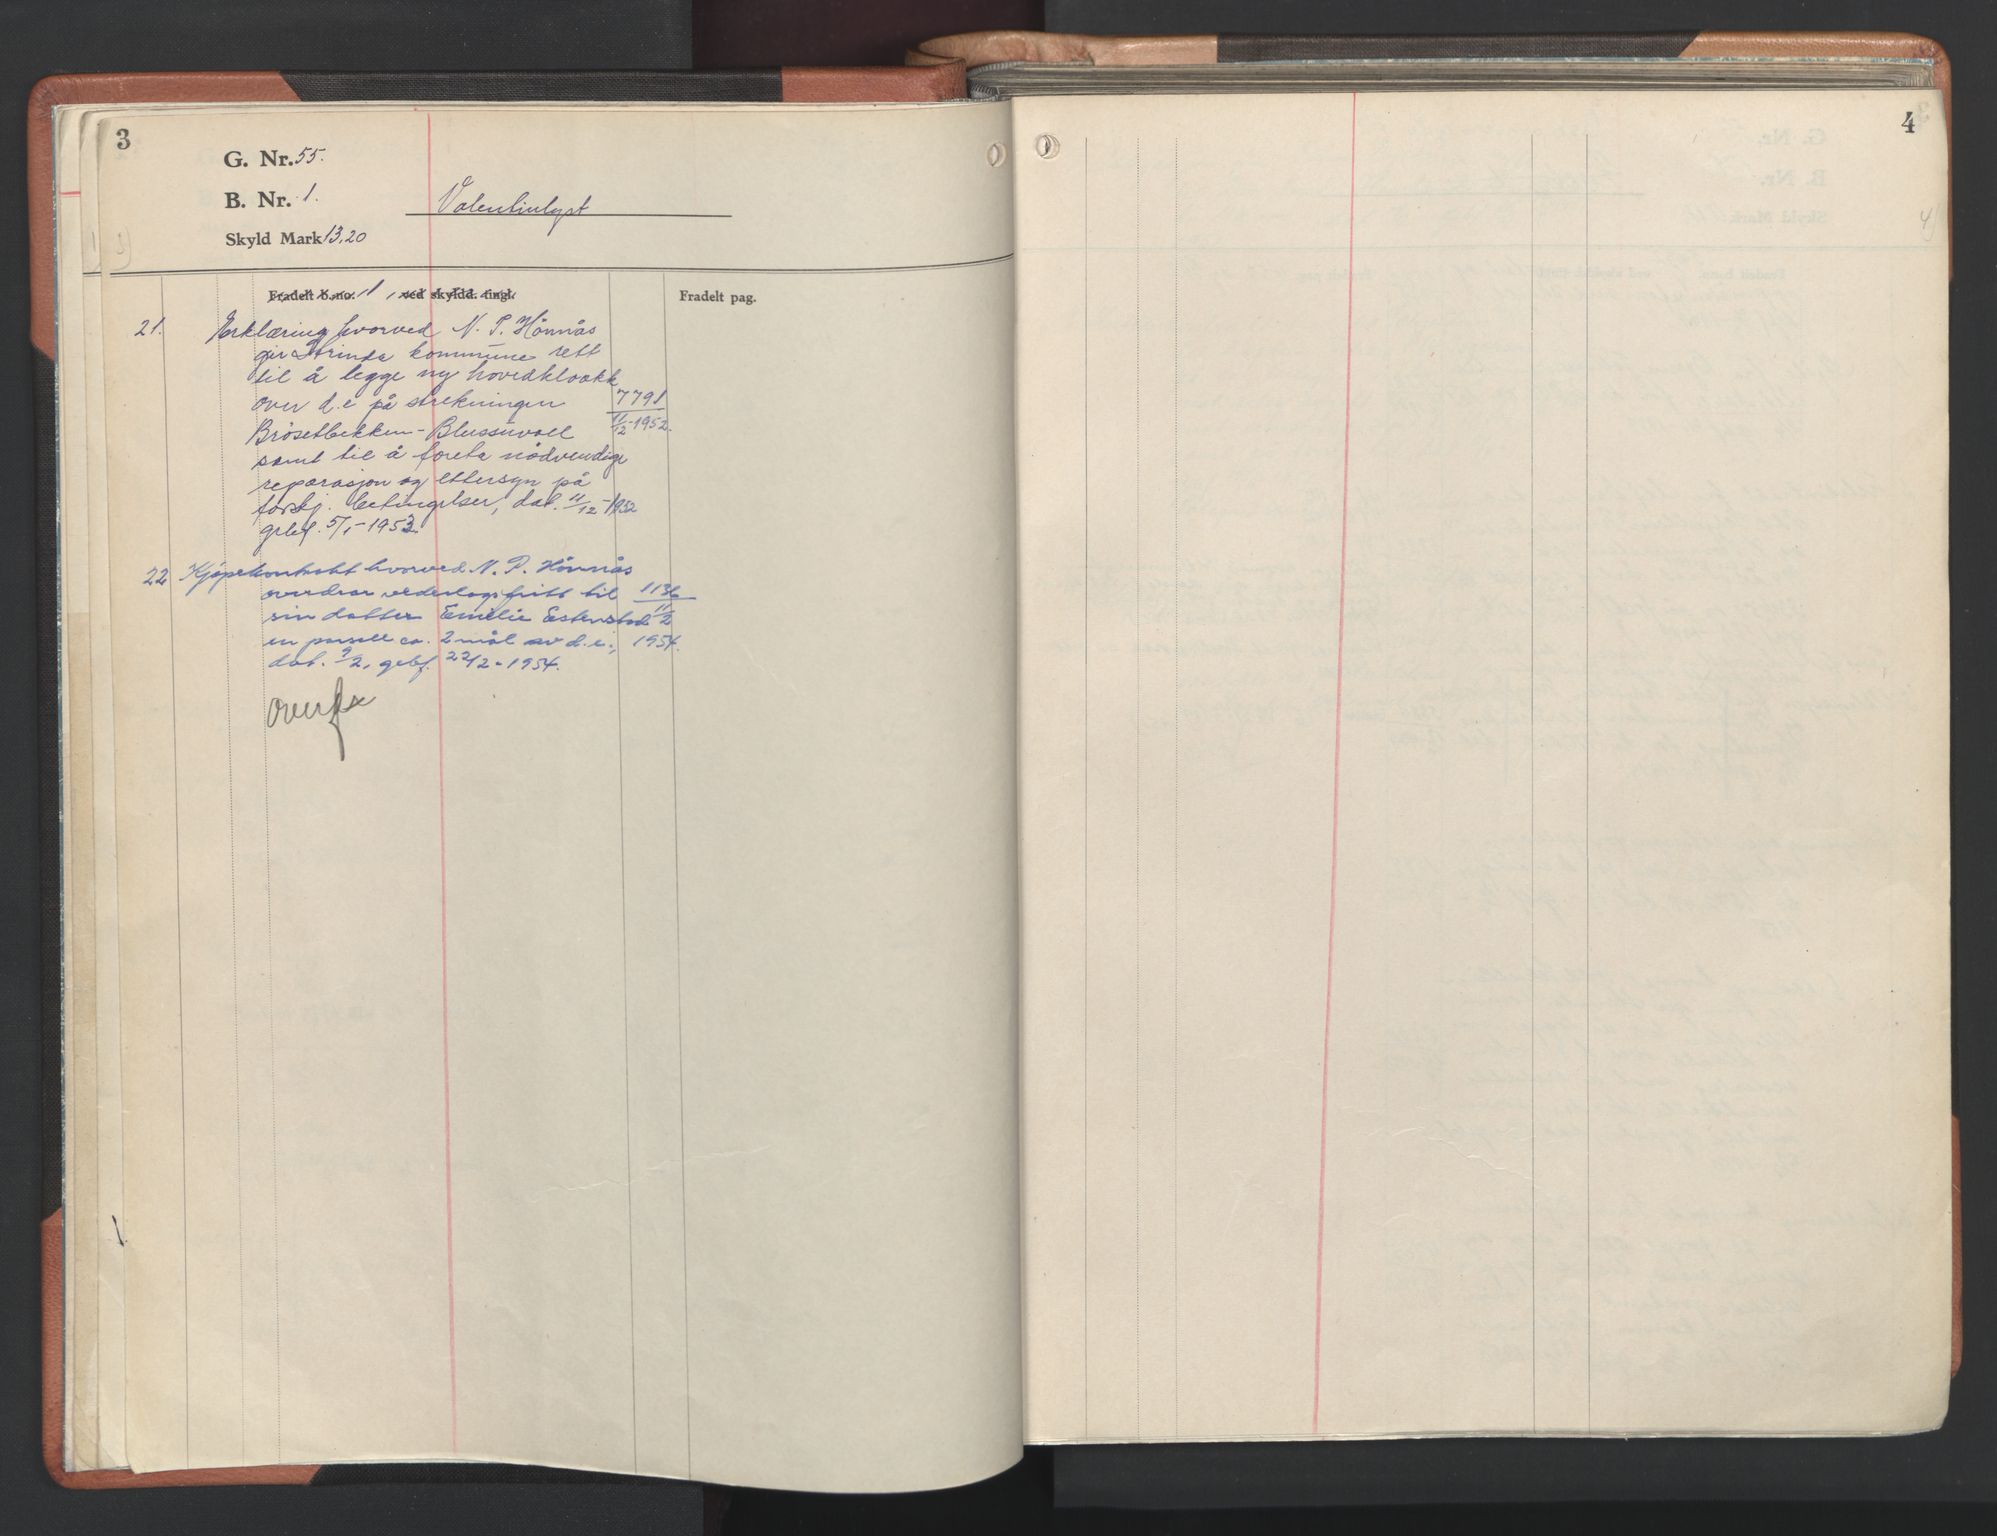 3
G. Nr. 55.
B. Nr. 1.
Valentinlyst
Skyld Mark 13,20
Fradelt b.no. ved skyldd. tingl.
Fradelt pag.
21. Erklæring hvorved N. P. Hönnås
gir Strinda kommune rett
til å legge ny hovedkloakk
over d.e på strekningen 7791
Brösetbekken - Blussuvoll 11/12-1952.
samt til å foreta nödvendige
reparasjon og ettersyn på
forskj. betingelser, dat. 11/12-1952
gebf. 5/1-1953.
22 Kjøpekontrakt hvorved N. P. Hönnås
overdrar vederlagsfritt til 1136
sin datter Emelie Estenstad 11/2
en parsell ca. 2 mål av d.e., 1954.
dat. 9/2, gebf. 22/2-1954.
overf
4
4)